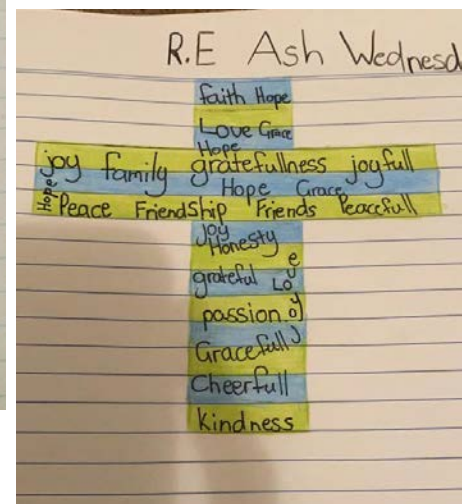 R.E Ash Wednesd
faith Hope
Love Grace
Hope
joy family gratefullness joyfull
Hope Grace
Hope Peace Friendship Friends Peacefull
Joy
Honesty
grateful Love
passion Joy
Gracefull
Cheerfull
kindness